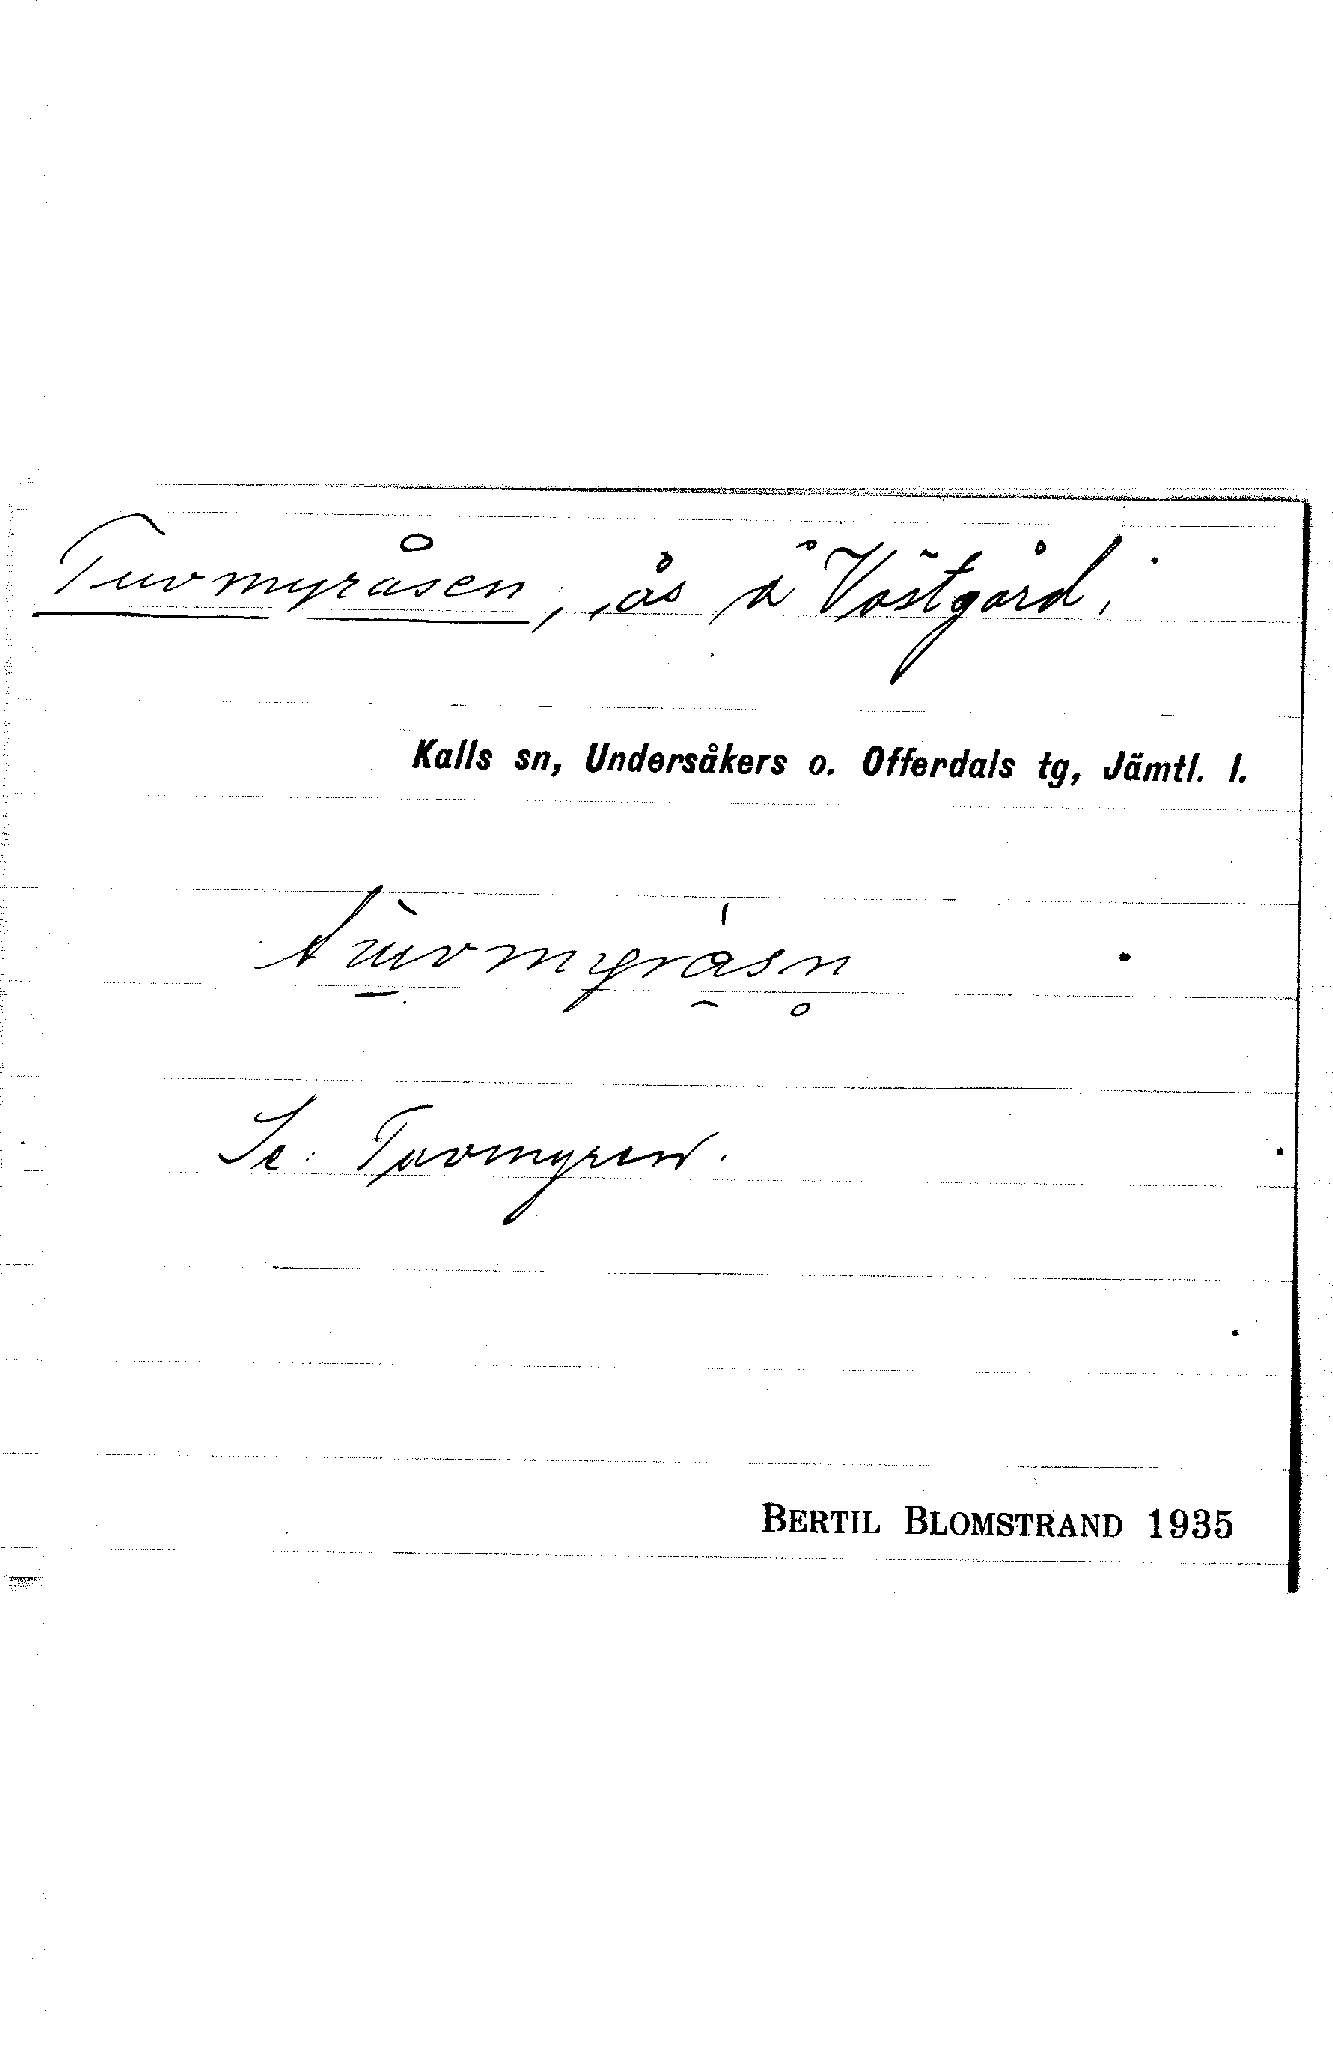 Tuvmyråsen, ås å Västgård,
Kalls sn, Undersåkers o. Offerdals tg, Jämtl. l.
tùvmyråsn̥
Se: Tuvmyren.
BERTIL BLOMSTRAND 1935